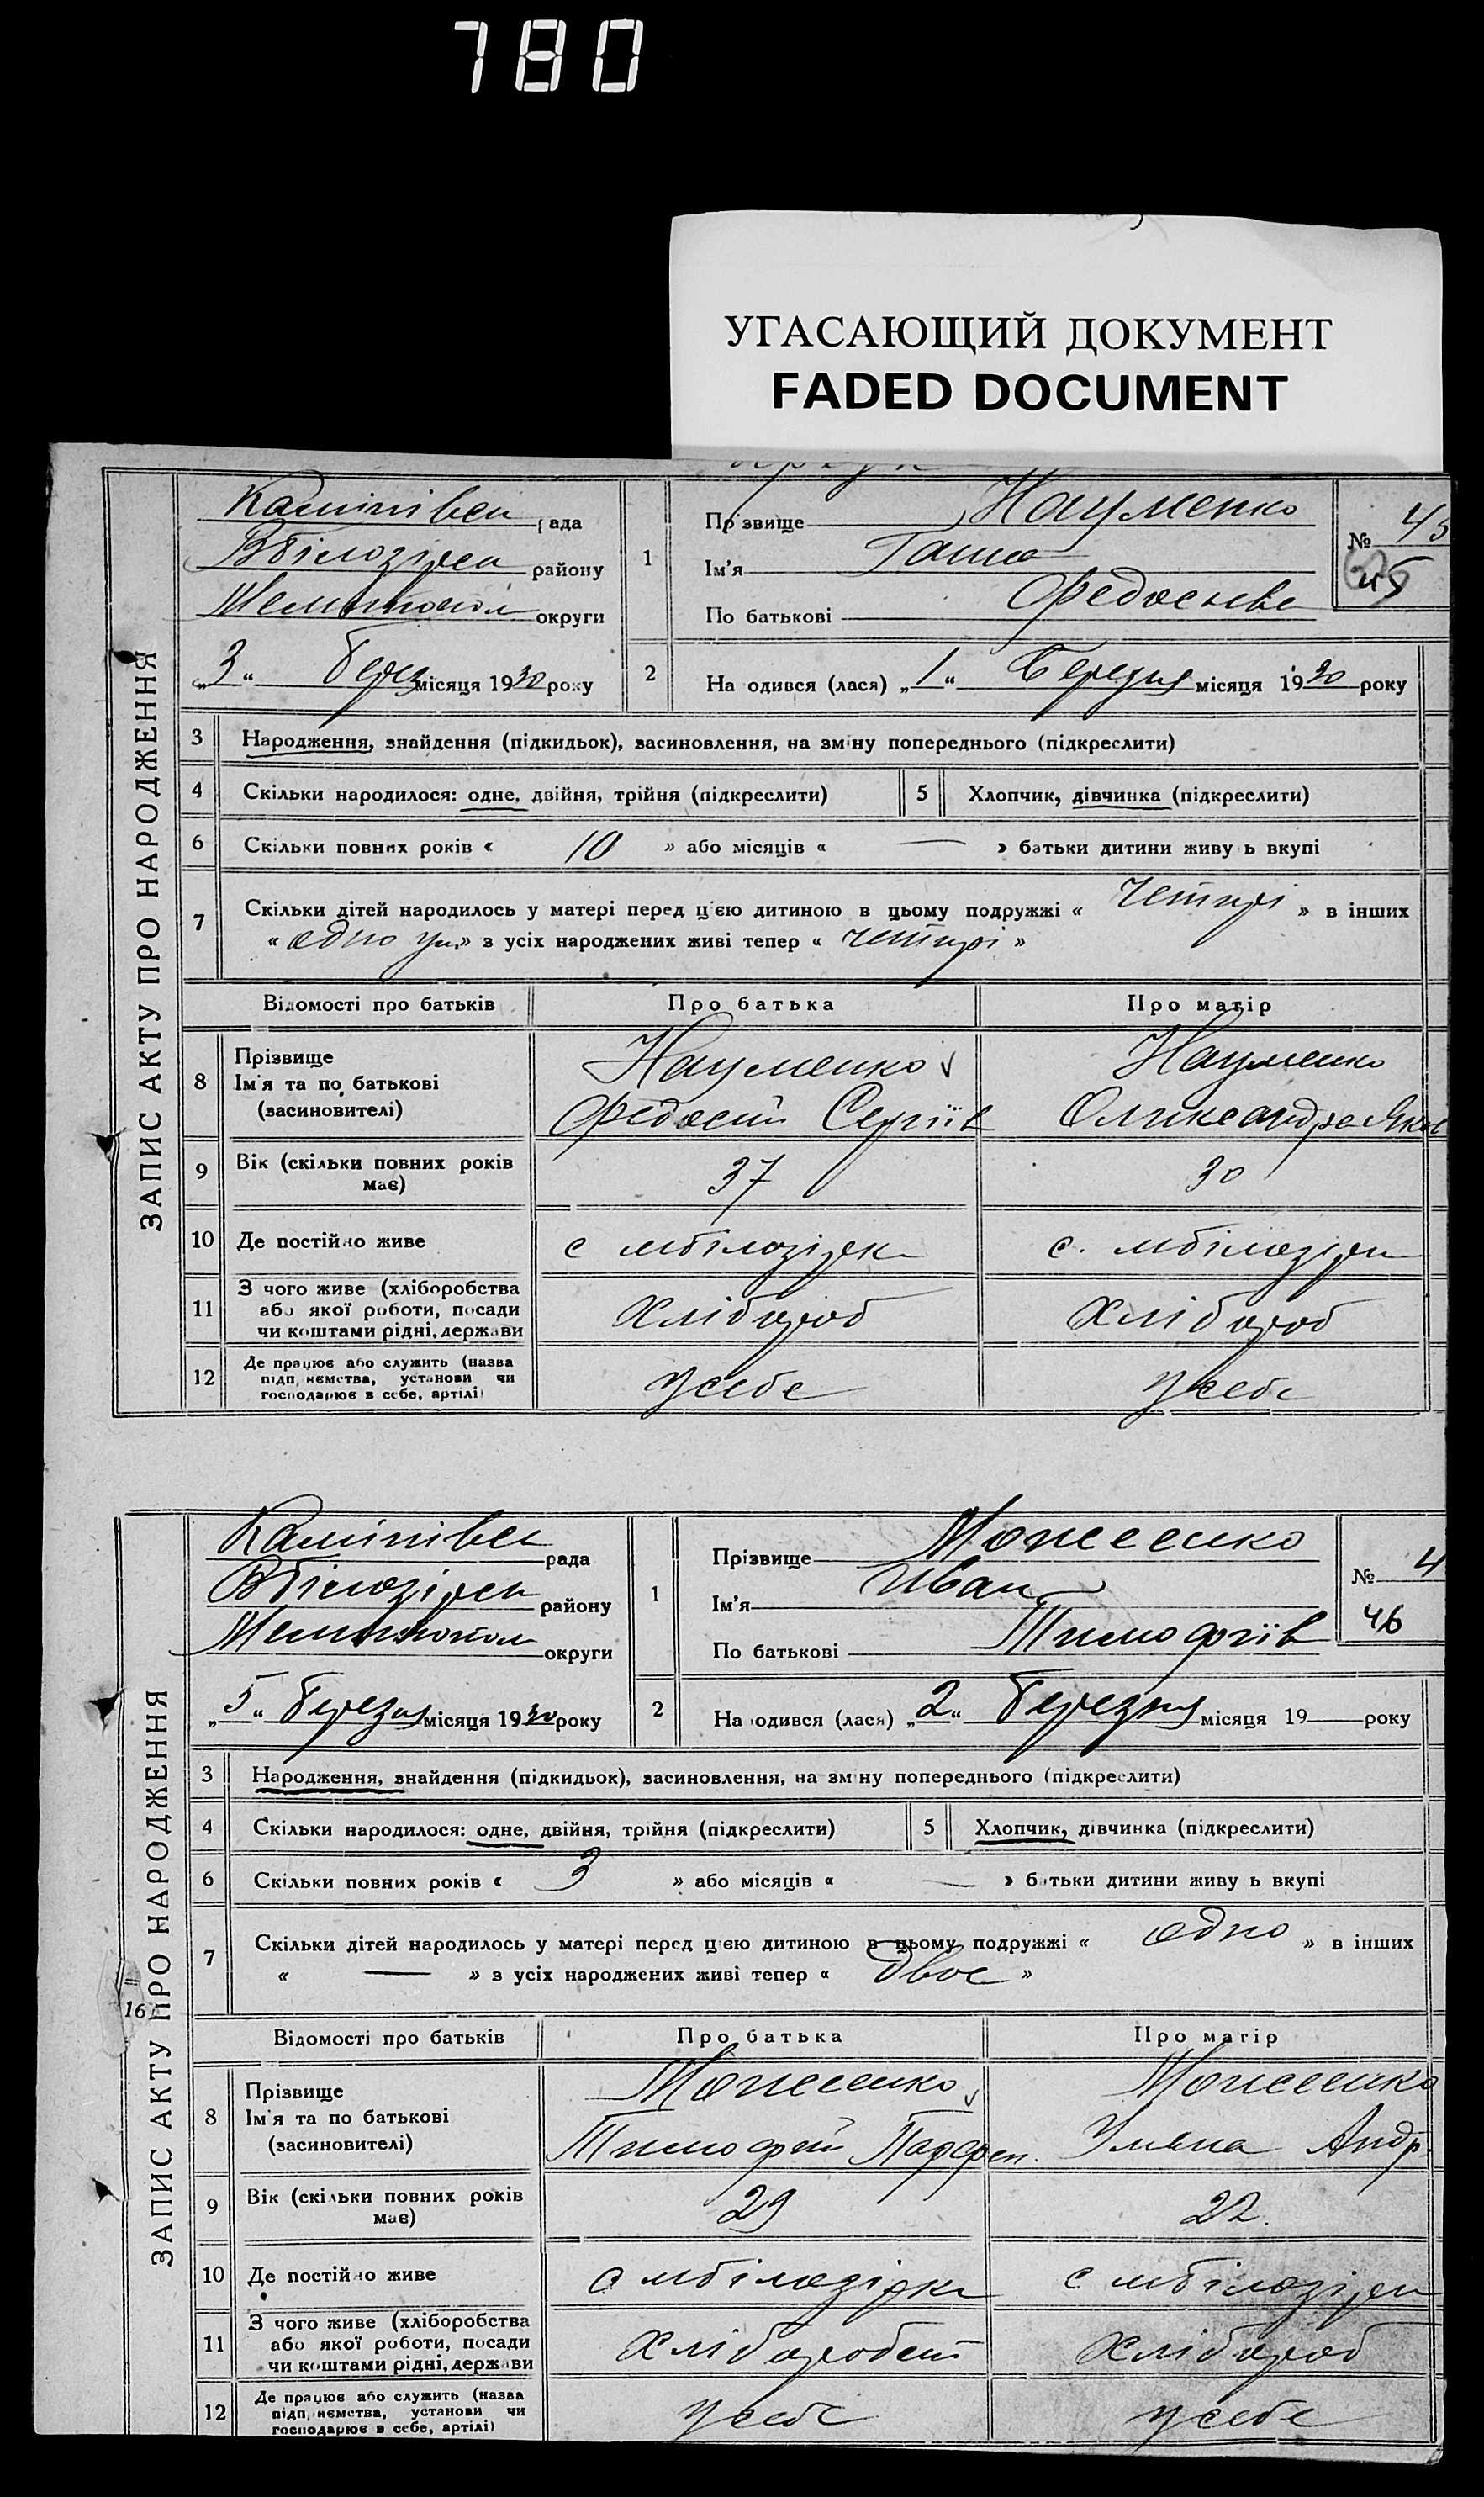 780
УГАСАЮЩИЙ ДОКУМЕНТ
FADED DOCUMENT
ЗАПИС АКТУ ПРО НАРОДЖЕННЯ
рада
Вбілозірск району
Мелитопол округи
„3“ Берез місяця 1930 року
1
Прізвище Науменко
Ім'я Ганна
По батькові Федосієва
№ 45
45
2
Народився (лася) „1“ Березня місяця 1930 року
3 Народження, знайдення (підкидьок), засиновлення, на зміну попереднього (підкреслити)
4 Скільки народилося: одне, двійня, трійня (підкреслити) 5 Хлопчик, дівчинка (підкреслити)
6 Скільки повних років « 10 » або місяців « — » батьки дитини живуть вкупі
7 Скільки дітей народилось у матері перед цією дитиною в цьому подружжі « четирі » в інших
« одно ум.» з усіх народжених живі тепер « четирі »
Відомості про батьків Про батька Про матір
8 Прізвище Науменко Науменко
Ім'я та по батькові Федосій Сергіїв Олександра Яков
(засиновителі)
9 Вік (скільки повних років має) 37 30
10 Де постійно живе с мбілозірка с. мбілозірк
11 З чого живе (хліборобства або якої роботи, посади чи коштами рідні, держави хлібороб хлібороб
12 Де працює або служить (назва підприємства, установи чи господарює в себе, артілі) у себе у себе
ЗАПИС АКТУ ПРО НАРОДЖЕННЯ
16
рада
Вбілозірск району
Мелитопол округи
„5“ Березня місяця 1930 року
1
Прізвище
Ім'я Иван
По батькові Тимофіїв
№ 4
46
2
Народився (лася) „2“ Березня місяця 19 року
3 Народження, знайдення (підкидьок), засиновлення, на зміну попереднього (підкреслити)
4 Скільки народилося: одне, двійня, трійня (підкреслити) 5 Хлопчик, дівчинка (підкреслити)
6 Скільки повних років « 3 » або місяців « — » батьки дитини живуть вкупі
7 Скільки дітей народилось у матері перед цією дитиною в цьому подружжі « одно » в інших
« — » з усіх народжених живі тепер « двоє »
Відомості про батьків Про батька Про матір
8 Прізвище
Ім'я та по батькові Тимофій Парфен. Уляна Андр.
(засиновителі)
9 Вік (скільки повних років має) 29 22.
10 Де постійно живе с мбілозірка с мбілозірк
11 З чого живе (хліборобства або якої роботи, посади чи коштами рідні, держави хліборобст хлібороб
12 Де працює або служить (назва підприємства, установи чи господарює в себе, артілі) у себе у себе